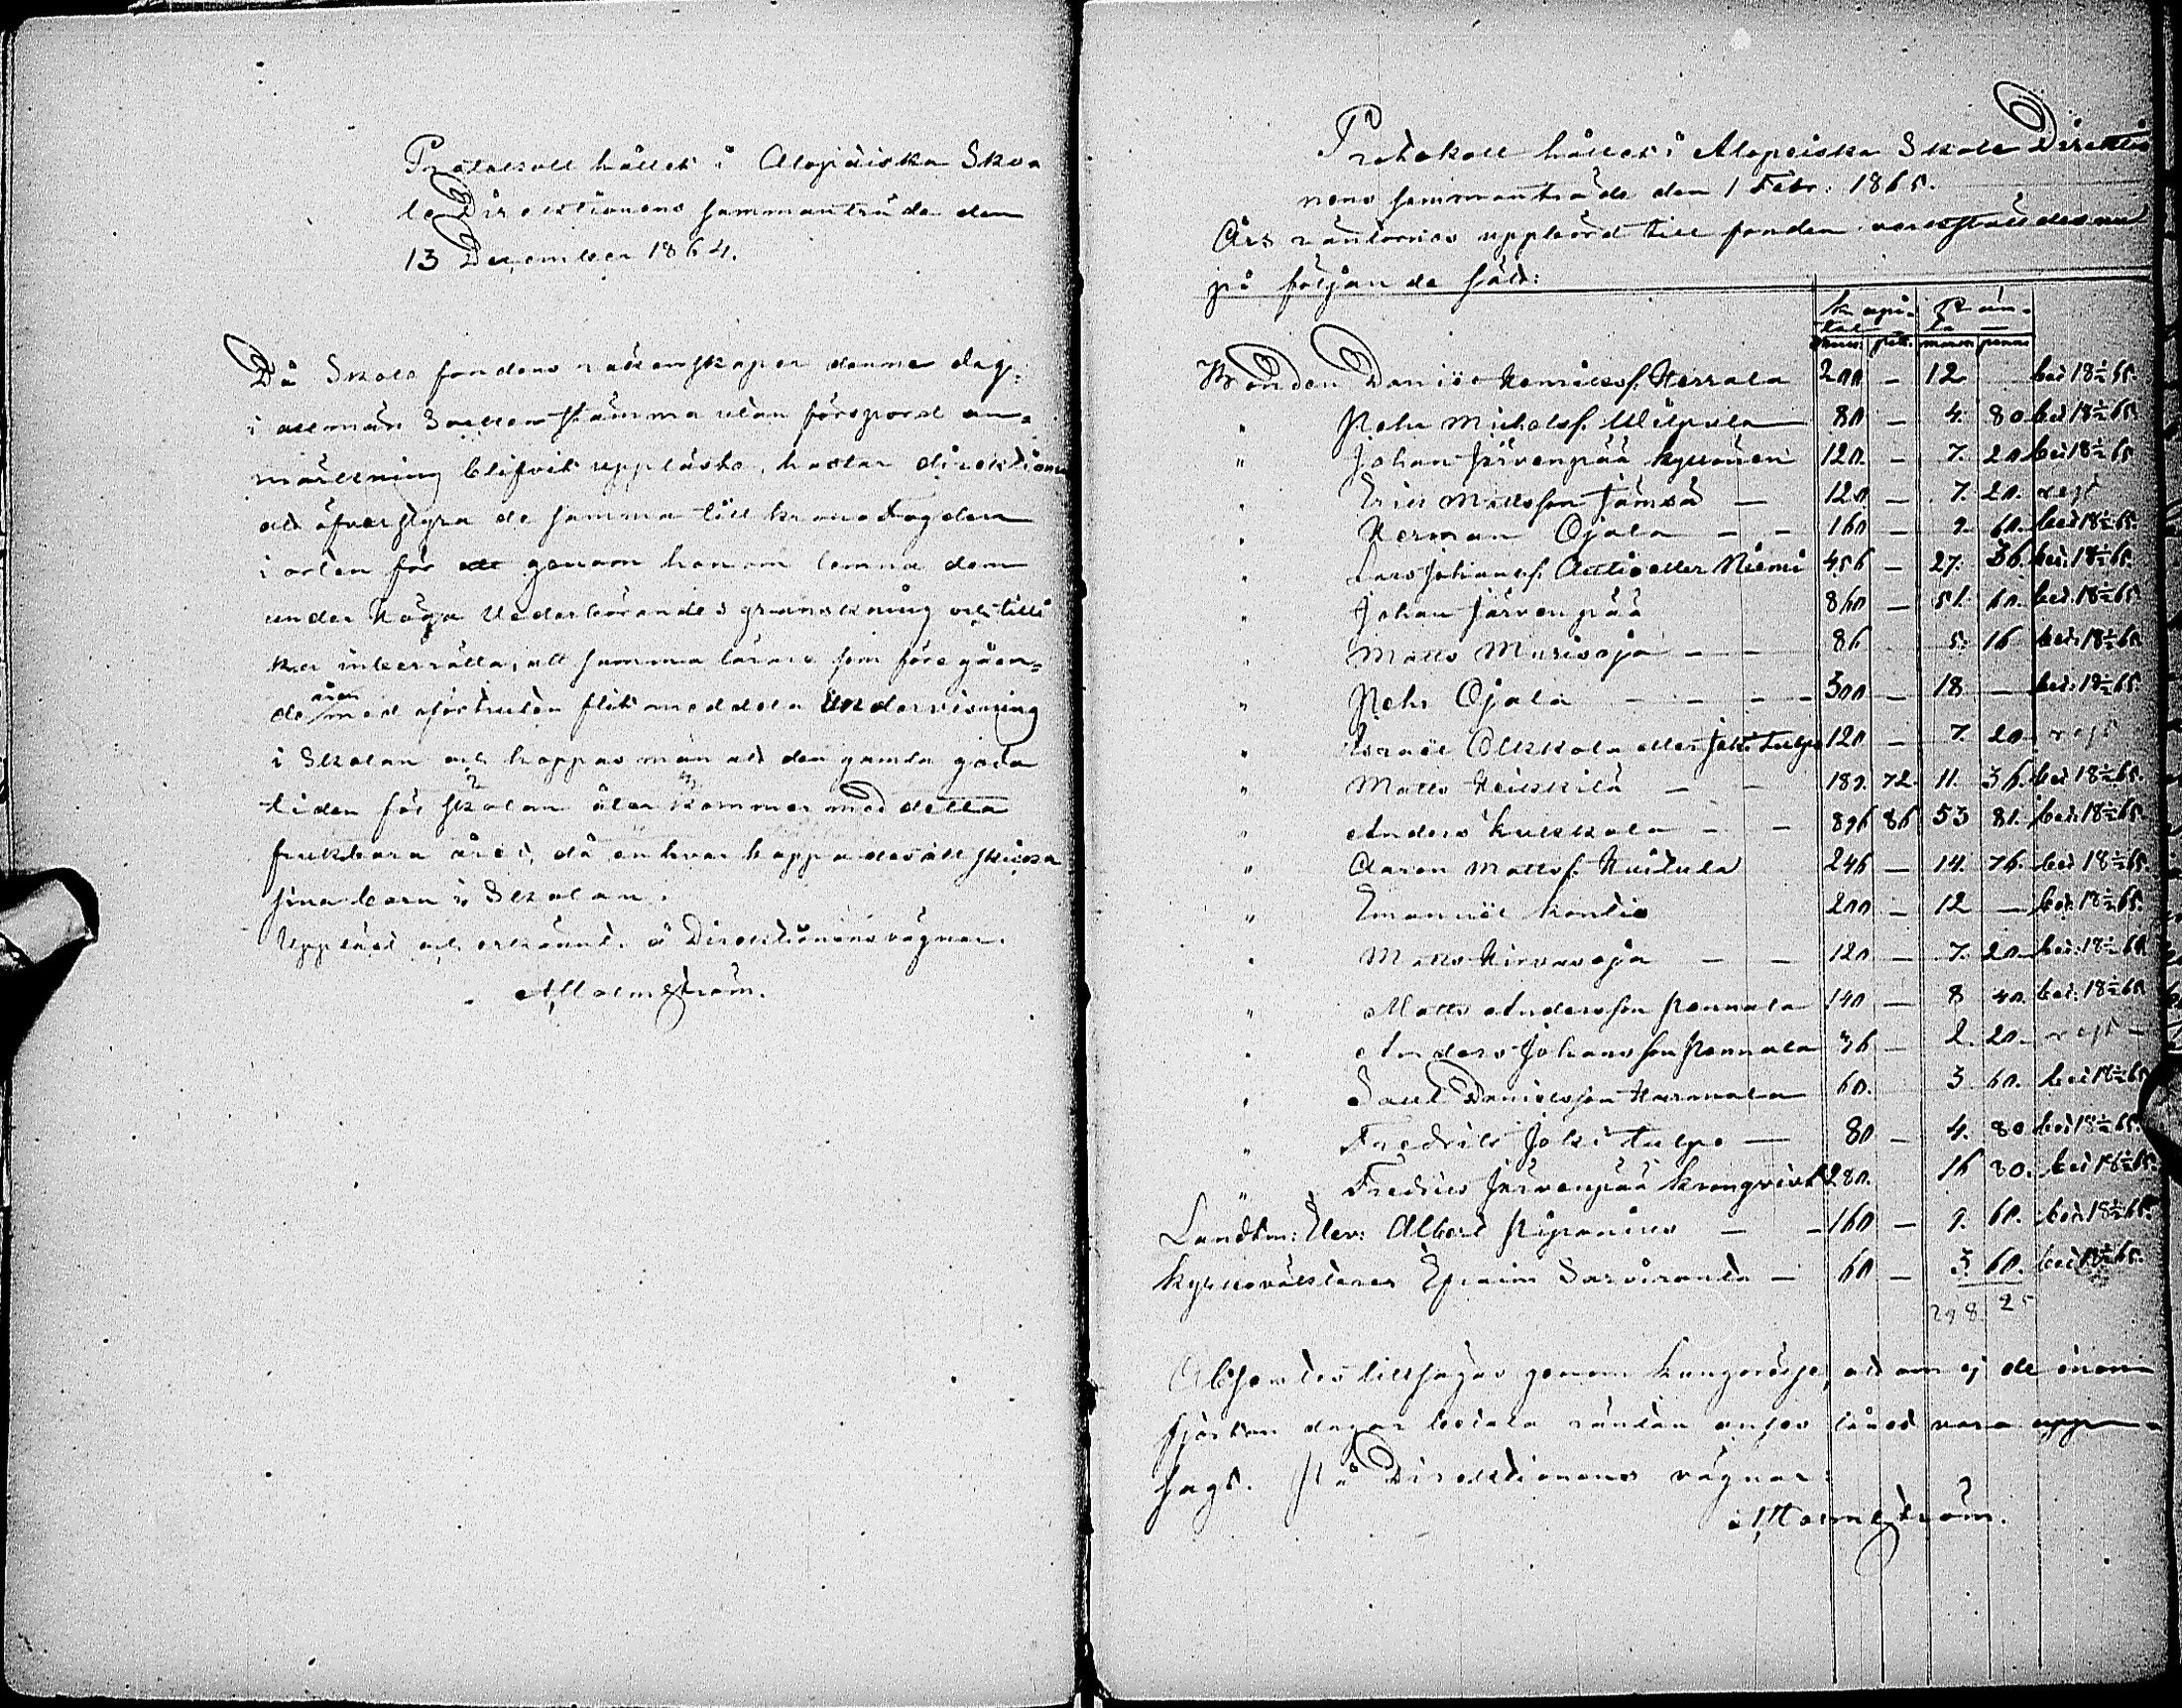 Protokoll hållet i Alapäiska Sko
le Direktionens sammanträde den
13 December 1864.
Då Skole fondens räkenskaper denna dag
i allmän Sockenstämma utan förspord an=
märkning blifvit uppläste, hastar direktionen
att öfverstyra de samma till kronofogden
i orten för att genom honom lemna dem
under Höga Vederbörandes granskning och tilli
ka inberätta, att samma lärare som föregåen=
de åren med oförtruten flit meddela undervisning
i Skolan och hoppas man att den gamla goda
tiden för skolan åter kommer med detta
fruktbara året, då en hvar hoppades att skicka
sina barn i Skolan.
Uppläst och erkändt. å Direktionens vägnar.
A Malmström.
Protokoll hållet i Alapeiska Skole Direktio
nens sammanträde den 1 Febr. 1865.
Års räntornas uppbörd till fonden verkställdes nu
på följande sätt:
Kapi- Rän-
tal ta
mark pen. mark penni
Bonden Daniel Henriksf. Herrala 200 - 12 bet 18 2/2 65.
" Pehr Michelsf. 80 - 4. 80 bet 18 2/2 65
" Johan Järvenpää Kyrönen 120. - 7. 20 bet 18 2/2 65
" Eric Mattsson Jämsä - 120 - 7. 20. rest
" Herman Ojala - - 160 - 9. 60. bet 18 2/2 65.
" Lars Johansf. Antio eller Niemi 456 - 27. 36. bet. 18 2/2 65.
" Johan Järvenpää 860 - 51. 60. bet. 18 2/2 65
" Matts Murisoja - - 86 5. 16 bet. 18 2/2 65
" Pehr Ojala - - - - 300 - 18 - bet. 18 2/2 65.
" Israel Ollkkola eller Jokitulpo 120 - 7 20 rest
" Matts Heikkilä - - 189. 72. 11. 36. bet 18 2/2 65.
" Anders Kukkola - - 896 86 53 81. bet. 18 2/2 65.
" Aaron Mattsf. Huitula 246 - 14. 76. bet 18 2/2 65.
" Emanuel Kontio 200 - 12 - bet. 18 2/2 65.
" Matts Hirvasoja - - 120 - 7. 20 - bet. 18 2/2 65
" Matts Andersson Pennala 140 - 8 40. bet. 18 2/2 65
" Anders Johansson Pennala 36 - 2. 20. rest -
" Saul Danielsson Harmala 60. 3 60. bet 18 2/2 65
" Fredrik Jokitulpo - 80 - 4. 80 bet 18 2/2 65.
" Fredric Järvenpää Krongvist 280. 16 80. bet 18 2/2 65.
Landtm: Elev: Albert Piponius - - 160 - 9. 60. bet. 18 2/2 65.
Kyrkoväktaren Epraim Sarviranta - 60 - 3. 60. bet 18 2/2 65.
298. 25
Absentes tillsägas genom kungörelse, att om ej de inom
fjorton dagar betala räntan anses lånet vara upp-
sagt. På Direktionens vägnar:
A Malmström.